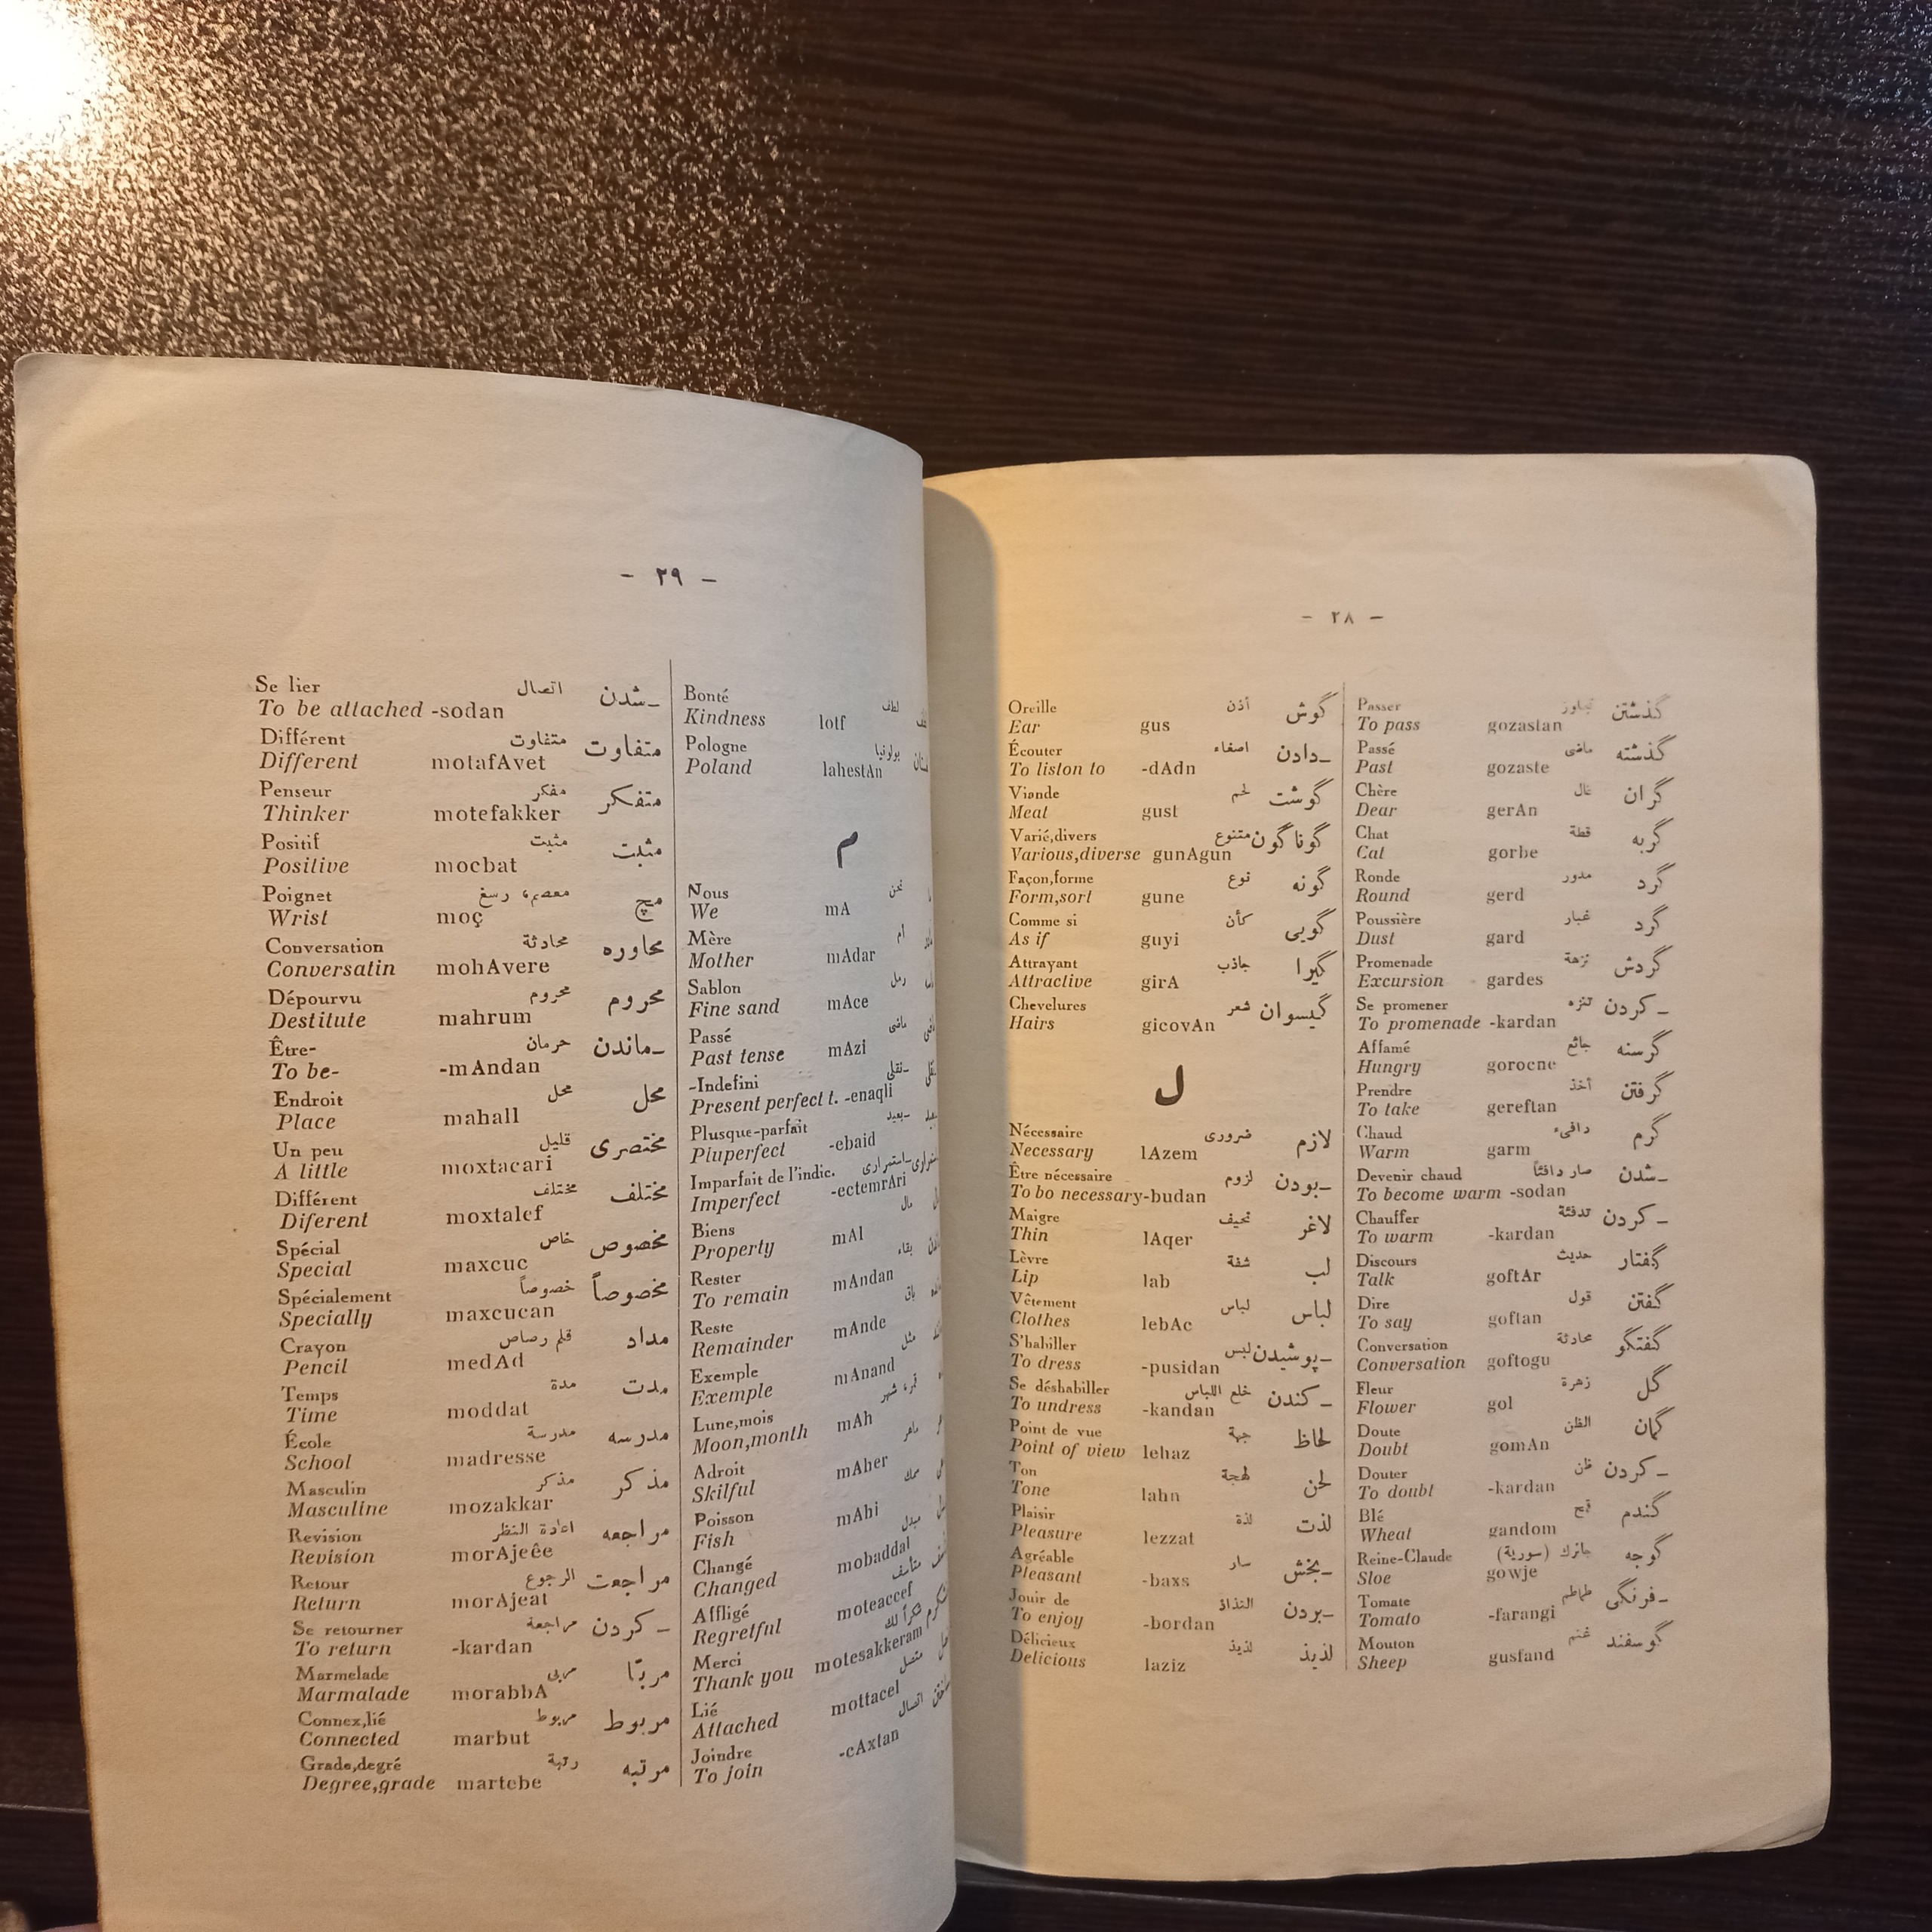 - ٢٨ -
Passer تجاوز گذشتن
To pass gozastan
Passé ماضی گذشته
Past gozaste
Chère غال گران
Dear gerAn
Chat قطة گربه
Cat gorbe
Ronde مدور گرد
Round gerd
Poussière غبار گرد
Dust gard
Promenade نزهة گردش
Excursion gardes
Se promener تنزه ـ کردن
To promenade -kardan
Affamé جائع گرسنه
Hungry gorocne
Prendre أخذ گرفتن
To take gereftan
Chaud دافیء گرم
Warm garm
Devenir chaud صار دافئاً ـشدن
To become warm -sodan
Chauffer تدفئة ـ کردن
To warm -kardan
Discours حدیث گفتار
Talk goftAr
Dire قول گفتن
To say goftan
Conversation محادثة گفتگو
Conversation goftogu
Fleur زهرة گل
Flower gol
Doute الظن گمان
Doubt gomAn
Douter ظن ـ کردن
To doubt -kardan
Blé قمح گندم
Wheat gandom
Reine-Claude جانرك (سوریة) گوجه
Sloe gowje
Tomate طماطم ـفرنگی
Tomato -farangi
Mouton غنم گوسفند
Sheep gusfand
Oreille أذن گوش
Ear gus
Écouter اصغاء ـدادن
To liston to -dAdn
Viande لحم گوشت
Meat gust
Varié,divers متنوع گوناگون
Various,diverse gunAgun
Façon,forme نوع گونه
Form,sort gune
Comme si كأن گویی
As if guyi
Attrayant جاذب گیرا
Attractive girA
Chevelures شعر گیسوان
Hairs gicovAn
ل
Nécessaire ضروری لازم
Necessary lAzem
Être nécessaire لزوم ـبودن
To bo necessary-budan
Maigre نحیف لاغر
Thin lAqer
Lèvre شفة لب
Lip lab
Vêtement لباس لباس
Clothes lebAc
S'habiller لبس ـپوشیدن
To dress -pusidan
Se déshabiller خلع اللباس ـ کندن
To undress -kandan
Point de vue جهة لحاظ
Point of view lehaz
Ton لهجة لحن
Tone lahn
Plaisir لذة لذت
Pleasure lezzat
Agréable سار ـبخش
Pleasant -baxs
Jouir de التذاذ ـبردن
To enjoy -bordan
Délicieux لذیذ لذیذ
Delicious laziz
- ٢٩ -
Bonté لطف
Kindness lotf
Pologne بولونیا
Poland lahestAn
م
Nous نحن
We mA
Mère أم
Mother mAdar
Sablon رمل
Fine sand mAce
Passé ماضی
Past tense mAzi
-Indefini ـنقلی
Present perfect t. -enaqli
Plusque-parfait ـبعید
Pluperfect -ebaid
Imparfait de l'indic. ـاستمراری
Imperfect -ectemrAri
Biens مال
Property mAl
Rester بقاء
To remain mAndan
Reste باق
Remainder mAnde
Exemple مثل
Exemple mAnand
Lune,mois قمر، شهر
Moon,month mAh
Adroit ماهر
Skilful mAher
Poisson سمك
Fish mAhi
Changé مبدل
Changed mobaddal
Affligé متأسف
Regretful moteaccef
Merci شكراً لك
Thank you motesakkeram
Lié متصل
Attached mottacel
Joindre اتصال
To join -cAxtan
Se lier اتصال ـشدن
To be attached -sodan
Différent متفاوت متفاوت
Different motafAvet
Penseur مفكر متفکر
Thinker motefakker
Positif مثبت مثبت
Positive mocbat
Poignet معصم، رسغ مچ
Wrist moç
Conversation محادثة محاوره
Conversatin mohAvere
Dépourvu محروم محروم
Destitute mahrum
Être- حرمان ـماندن
To be- -mAndan
Endroit محل محل
Place mahall
Un peu قلیل مختصری
A little moxtacari
Différent مختلف مختلف
Diferent moxtalef
Spécial خاص مخصوص
Special maxcuc
Spécialement خصوصاً مخصوصاً
Specially maxcucan
Crayon قلم رصاص مداد
Pencil medAd
Temps مدة مدت
Time moddat
École مدرسة مدرسه
School madresse
Masculin مذكر مذکر
Masculine mozakkar
Revision اعادة النظر مراجعه
Revision morAjeêe
Retour الرجوع مراجعت
Return morAjeat
Se retourner مراجعة ـ کردن
To return -kardan
Marmelade مربی مربّا
Marmalade morabbA
Connex,lié مربوط مربوط
Connected marbut
Grade,degré رتبة مرتبه
Degree,grade martebe